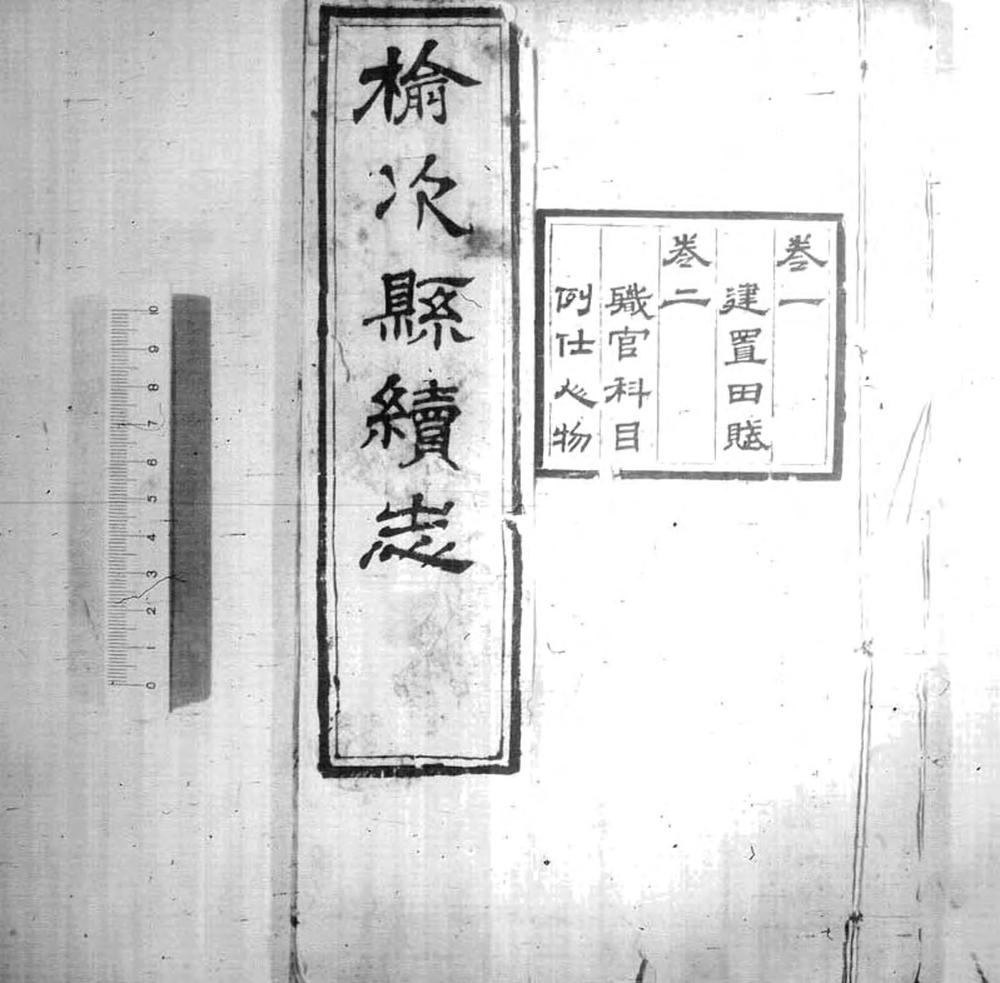 榆次縣續志
卷一
建置田賦
卷二
職官科目
例仕人物
10 9 8 7 6 5 4 3 2 1 0